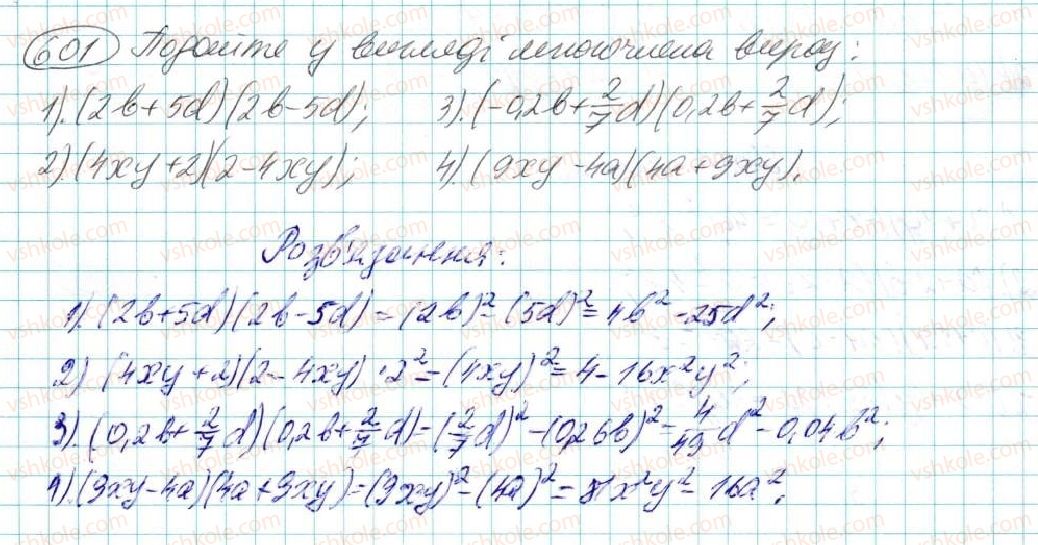 601 Подайте у вигляді многочлена вираз:
1). (2b+5d)(2b-5d); 3). (-0,2b+2/7d)(0,2b+2/7d);
2). (4xy+2)(2-4xy); 4). (9xy-4a)(4a+9xy).
Розв'язання:
1). (2b+5d)(2b-5d)=(2b)²-(5d)²=4b²-25d²;
2) (4xy+2)(2-4xy)·2²-(4xy)²=4-16x²y²;
3). (0,2b+2/7d)(0,2b+2/7d)-(2/7d)²-(0,2bb)²-4/49d²-0,04b²;
4). (9xy-4a)(4a+9xy)=(9xy)²-(4a)²=81x²y²-16a²;
vshkole.com